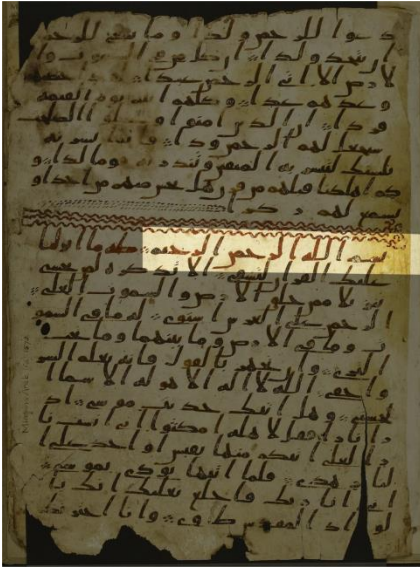 دعوا للرحمن ولدا وما ينبغي للرحمن
ان يتخذ ولدا ان كل من في السموت وا
لارض الا اتي الرحمن عبدا لقد احصيهم
وعدهم عدا وكلهم اتيه يوم القيمة
فردا ان الذين امنوا وعملوا الصلحت
سيجعل لهم الرحمن ودا فانما يسرنه
بلسنك لتبشر به المتقين وتنذر به قوما لدا و
كم اهلكنا قبلهم من قرن هل تحس منهم من احد او
تسمع لهم ركزا
بسم الله الرحمن الرحيم طه ما انزلنا
عليك القران لتشقى الا تذكرة لمن يخشى
تنزيلا ممن خلق الارض والسموت العلى
الرحمن على العرش استوى له ما في السمو
ت وما في الارض وما بينهما وما تحت
الثرى وان تجهر بالقول فانه يعلم السر
واخفى الله لا اله الا هو له الاسما ا
لحسنى وهل اتيك حديث موسى اذ
را نارا فقل لاهله امكثوا اني انست نا
را لعلي اتيكم منها بقبس او اجد على ا
لنار هدى فلما اتيها نودي يموسى
اني انا ربك فاخلع نعليك انك با
لواد المقدس طوى وانا اخترتك